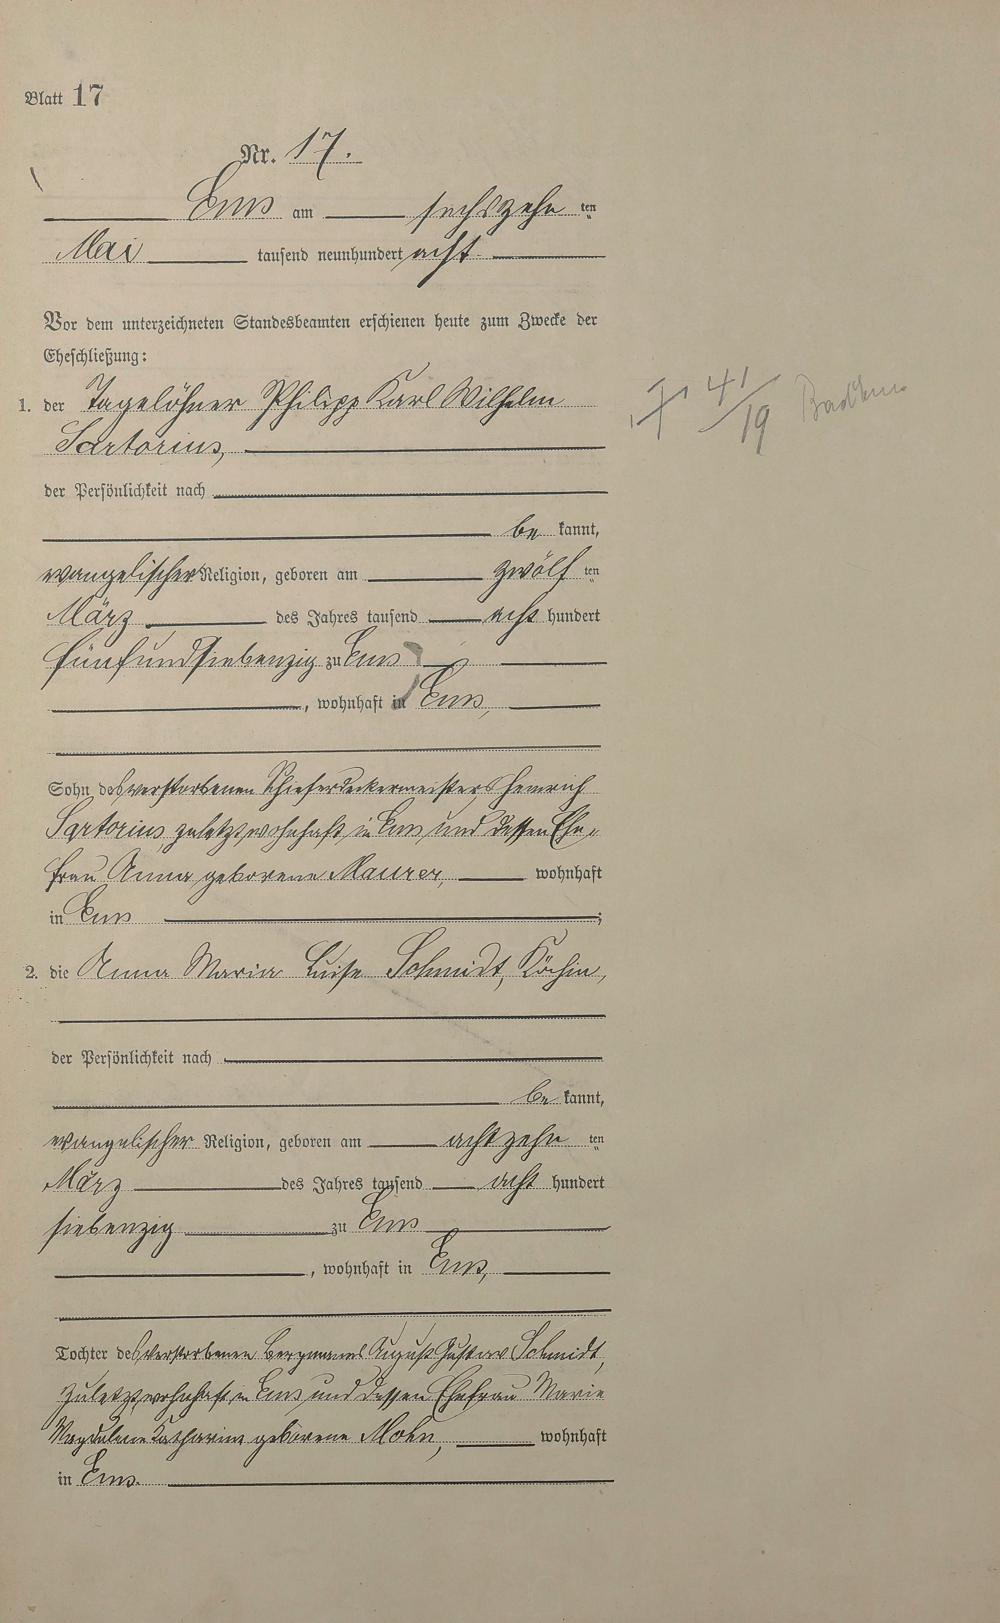 Blatt 17
Nr. 17.
Ems am sechszehn ten
Mai tausend neunhundert acht
Vor dem unterzeichneten Standesbeamten erschienen heute zum Zwecke der
Eheschließung:
1. der Tagelöhner Philipp Karl Wilhelm
Sartorius,
der Persönlichkeit nach
be kannt,
evangelischer Religion, geboren am zwölf ten
März des Jahres tausend acht hundert
fünfundsiebenzig zu Ems
, wohnhaft in Ems,
Sohn des verstorbenen Schieferdeckermeisters Heinrich
Sartorius, zuletzt wohnhaft in Ems und dessen Ehe-
frau Anna geborene Maurer, wohnhaft
in Ems ;
2. die Anna Maria Luise Schmidt, Köchin,
der Persönlichkeit nach
be kannt,
evangelischer Religion, geboren am achtzehn ten
März des Jahres tausend acht hundert
siebenzig zu Ems
, wohnhaft in Ems,
Tochter des verstorbenen Bergmanns August Gustav Schmidt,
zuletzt wohnhaft in Ems und dessen Ehefrau Marie
Magdalene Katharine geborene Mohn, wohnhaft
in Ems.
41/19